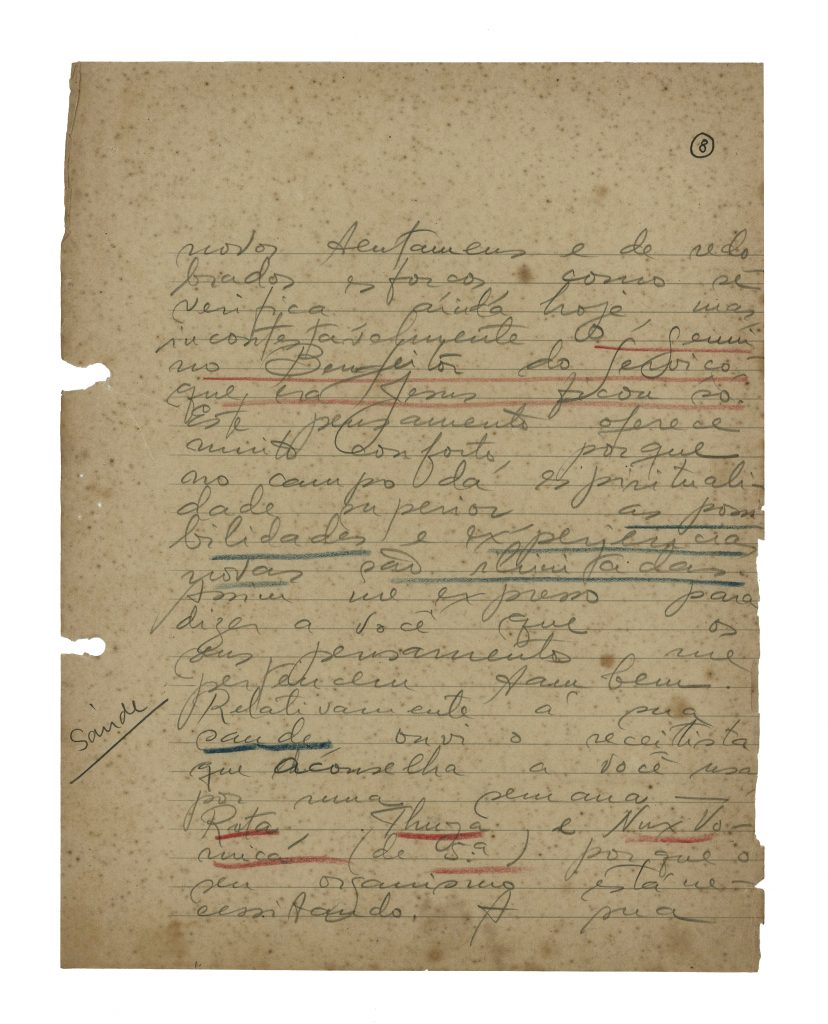 8
novos tentamens e de redo
brados esforços, como se
verifica ainda hoje, mas
incontestavelmente O genui
no Bemfeitor do Serviço,
que era Jesus ficou só.
Este pensamento oferece
muito conforto, porque
no campo da espirituali-
dade superior as possi
bilidades e experiencias
novas são ilimitadas.
Assim me expresso para
dizer a você que os
seus pensamentos me
pertencem tambem.
Relativamente á sua
saude, ouvi o receitista
que aconselha a você usa
por uma semana —
Ruta, Thuya e Nux Vo-
mica (de 5.ª) porque o
seu organismo está ne-
cessitando. A sua
Saúde